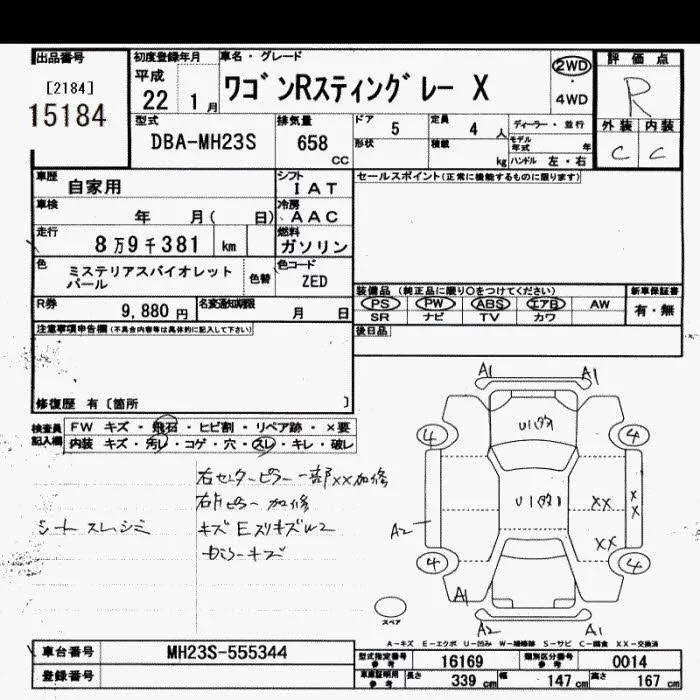 出品番号
[2184]
15184
初度登録年月
平成
22 1月
車名・グレード
ワゴンRスティングレー X
2WD
・
4WD
評価点
R
外装 内装
C C
型式
DBA-MH23S
排気量
658
CC
ドア 5
定員 4人
ディーラー・並行
形状
積載
kg
モデル年式 年
ハンドル 左・右
車歴
自家用
シフト
IAT
セールスポイント(正常に機能するものに限ります)
車検
年 月( 日)
冷房
AAC
走行
8万9千381 km
燃料
ガソリン
色
ミステリアスバイオレット
パール
色替
色コード
ZED
R券
9,880円
名変通知期限
月 日
装備品 (純正品に限り○をつけてください)
PS PW ABS エアB AW
SR ナビ TV カワ
新車保証書
有・無
注意事項申告欄(不具合内容等は具体的に記入して下さい)
後日品
修復歴 有〔箇所 〕
検査員
記入欄
FW キズ・飛石・ヒビ割・リペア跡・×要
内装 キズ・汚レ・コゲ・穴・スレ・キレ・破レ
右センターピラー一部××加修
右Fピラー加修
シートスレ、シミ
A1 A1
4 4
A2
XX
XX
4 4
A1
A2 A1
スペア
A-キズ E-エクボ U-凹み W-補修跡 S-サビ C-腐食 XX-交換済
車台番号
MH23S-555344
登録番号
型式指定番号
参考
16169
類別区分番号
参考
0014
車庫証明用
参考
長さ 339cm 幅 147cm 高さ 167cm